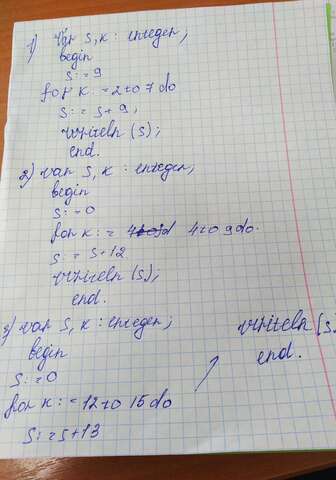 1) Var s, k : integer;
begin
s := 9
for k := 2 to 7 do
s := s + 9;
writeln (s);
end.
2) var s, k : integer;
begin
s := 0
for k := 4 to 9 do.
s := s + 12
writeln (s);
end.
3) var s, k : integer;
begin
s := 0
for k := 12 to 15 do
s := s + 13
writeln (s)
end.